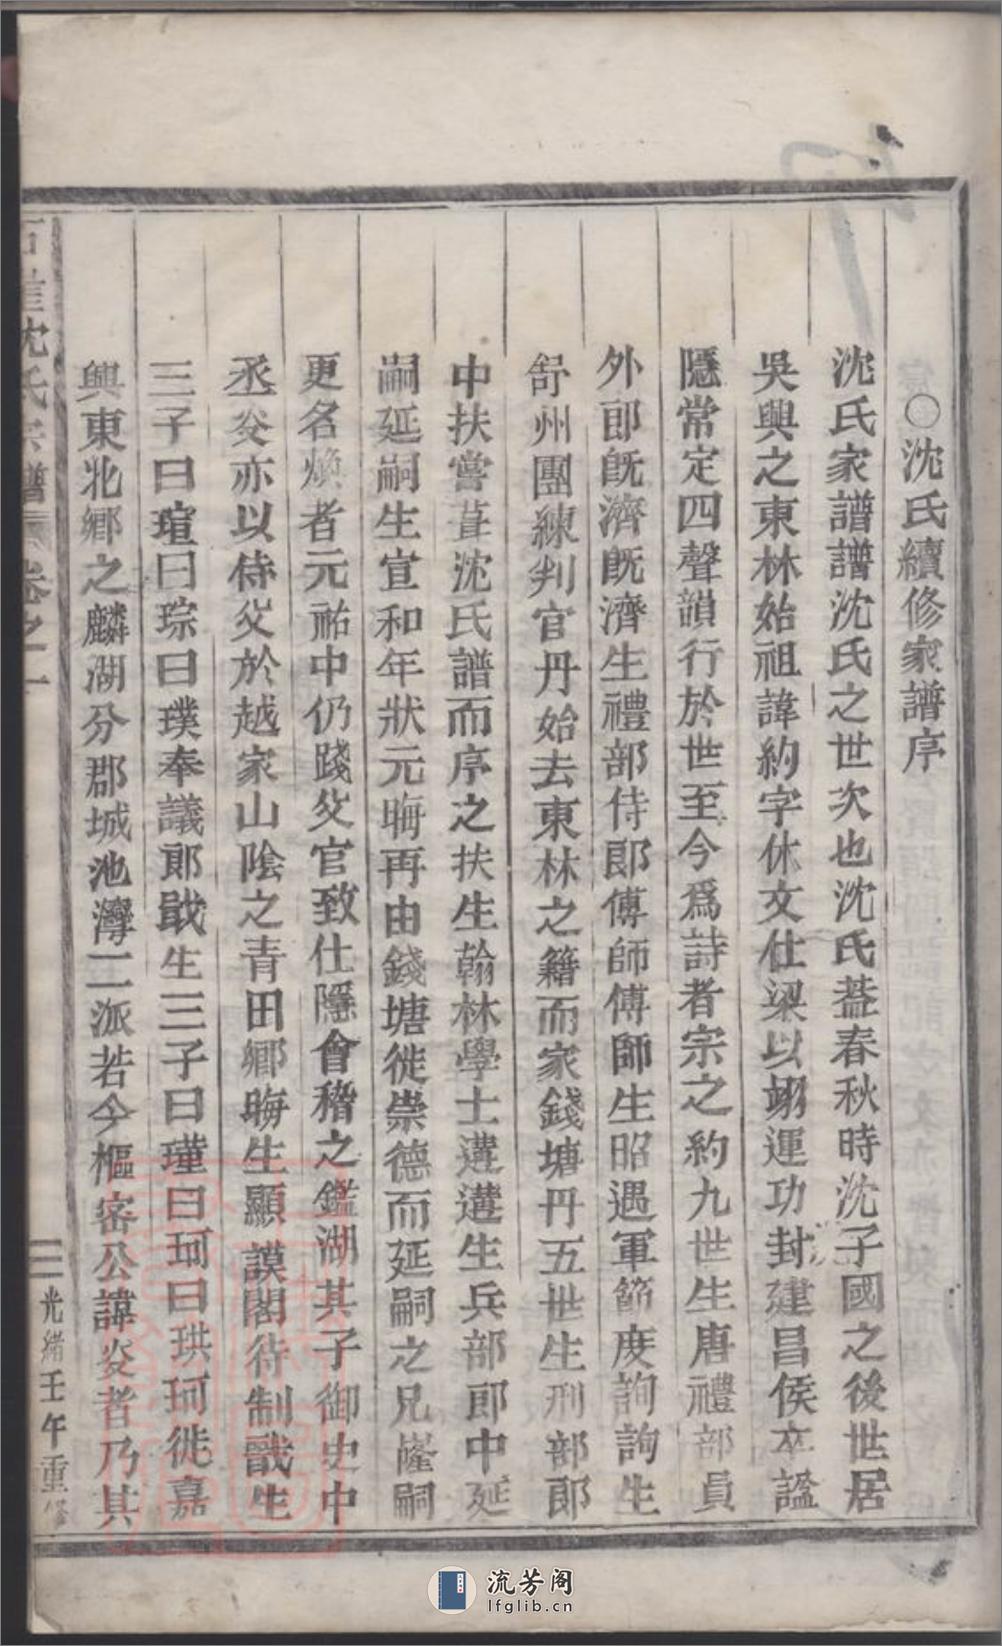 ○沈氏續修家譜序
沈氏家譜譜沈氏之世次也沈氏葢春秋時沈子國之後世居
吳興之東林始祖諱約字休文仕梁以翊運功封建昌侯卒諡
隱常定四聲韻行於世至今爲詩者宗之約九世生唐禮部員
外郎旣濟旣濟生禮部侍郎傅師傅師生昭遇軍節度詢詢生
舒州團練判官丹始去東林之籍而家錢塘丹五世生刑部郎
中扶嘗葺沈氏譜而序之扶生翰林學士遘遘生兵部郎中延
嗣延嗣生宣和年狀元晦再由錢塘徙崇德而延嗣之兄窿嗣
更名煥者元祐中仍踐父官致仕隱會稽之鑑湖其子御史中
丞炎亦以侍父於越家山陰之青田鄉晦生顯謨閣待制戩生
三子曰瑄曰琮曰璞奉議郎戩生三子曰瑾曰珂曰珙珂徙嘉
興東北鄉之麟湖分郡城池灣二派若今樞密公諱炎者乃其
沈氏宗譜 卷之一 二 光緒壬午重修
流芳阁
lfglib.cn